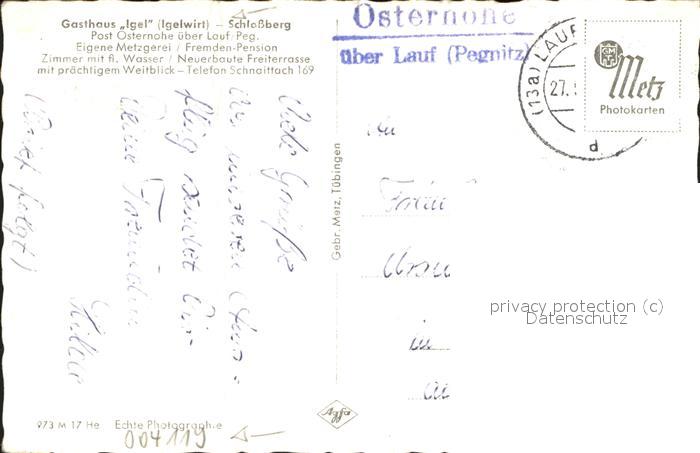 Gasthaus „Igel” (Igelwirt) – Schloßberg
Post Osternohe über Lauf/Peg.
Eigene Metzgerei / Fremden-Pension
Zimmer mit fl. Wasser / Neuerbaute Freiterrasse
mit prächtigem Weitblick – Telefon Schnaittach 169
Osternohe
über Lauf (Pegnitz)
(13a) LAUF
27.
d
Metz
Photokarten
Viele Grüße
flug sendet Dir
Deine Freundin
(Brief folgt)
Gebr. Metz, Tübingen
An
Frau
in
privacy protection (c)
Datenschutz
Agfa
973 M 17 He Echte Photographie
004119